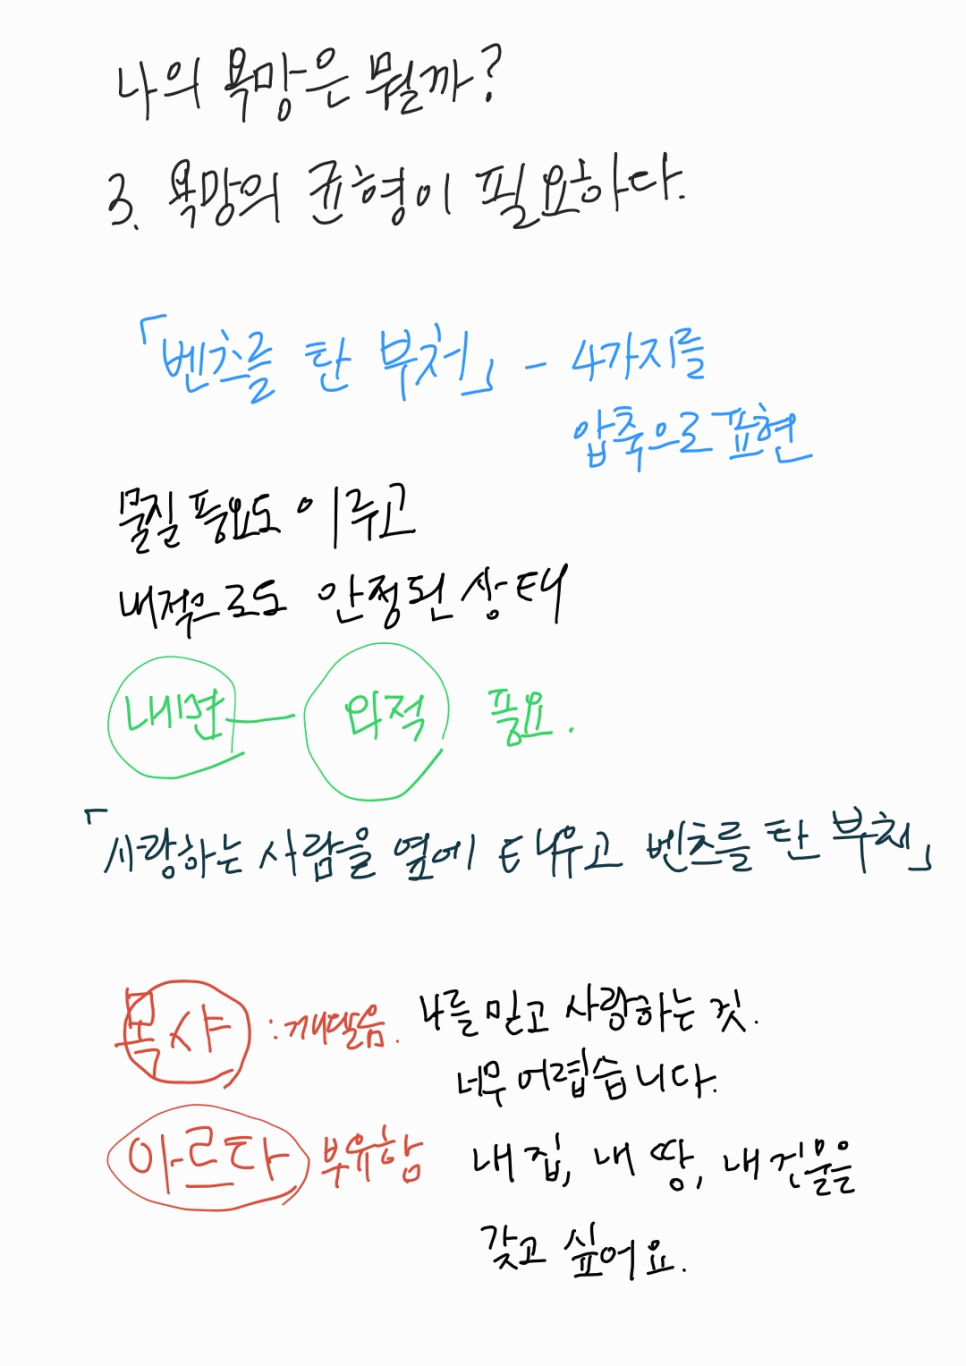 나의 욕망은 뭘까?
3. 욕망의 균형이 필요하다.
「벤츠를 탄 부처」 - 4가지를
압축으로 표현
물질 풍요도 이루고
내적으로도 안정된 상태
내면 — 외적 풍요.
「사랑하는 사람을 옆에 태우고 벤츠를 탄 부처」
목샤 : 깨달음. 나를 믿고 사랑하는 것.
너무 어렵습니다.
아르타 부유함 내 집, 내 땅, 내 건물을
갖고 싶어요.